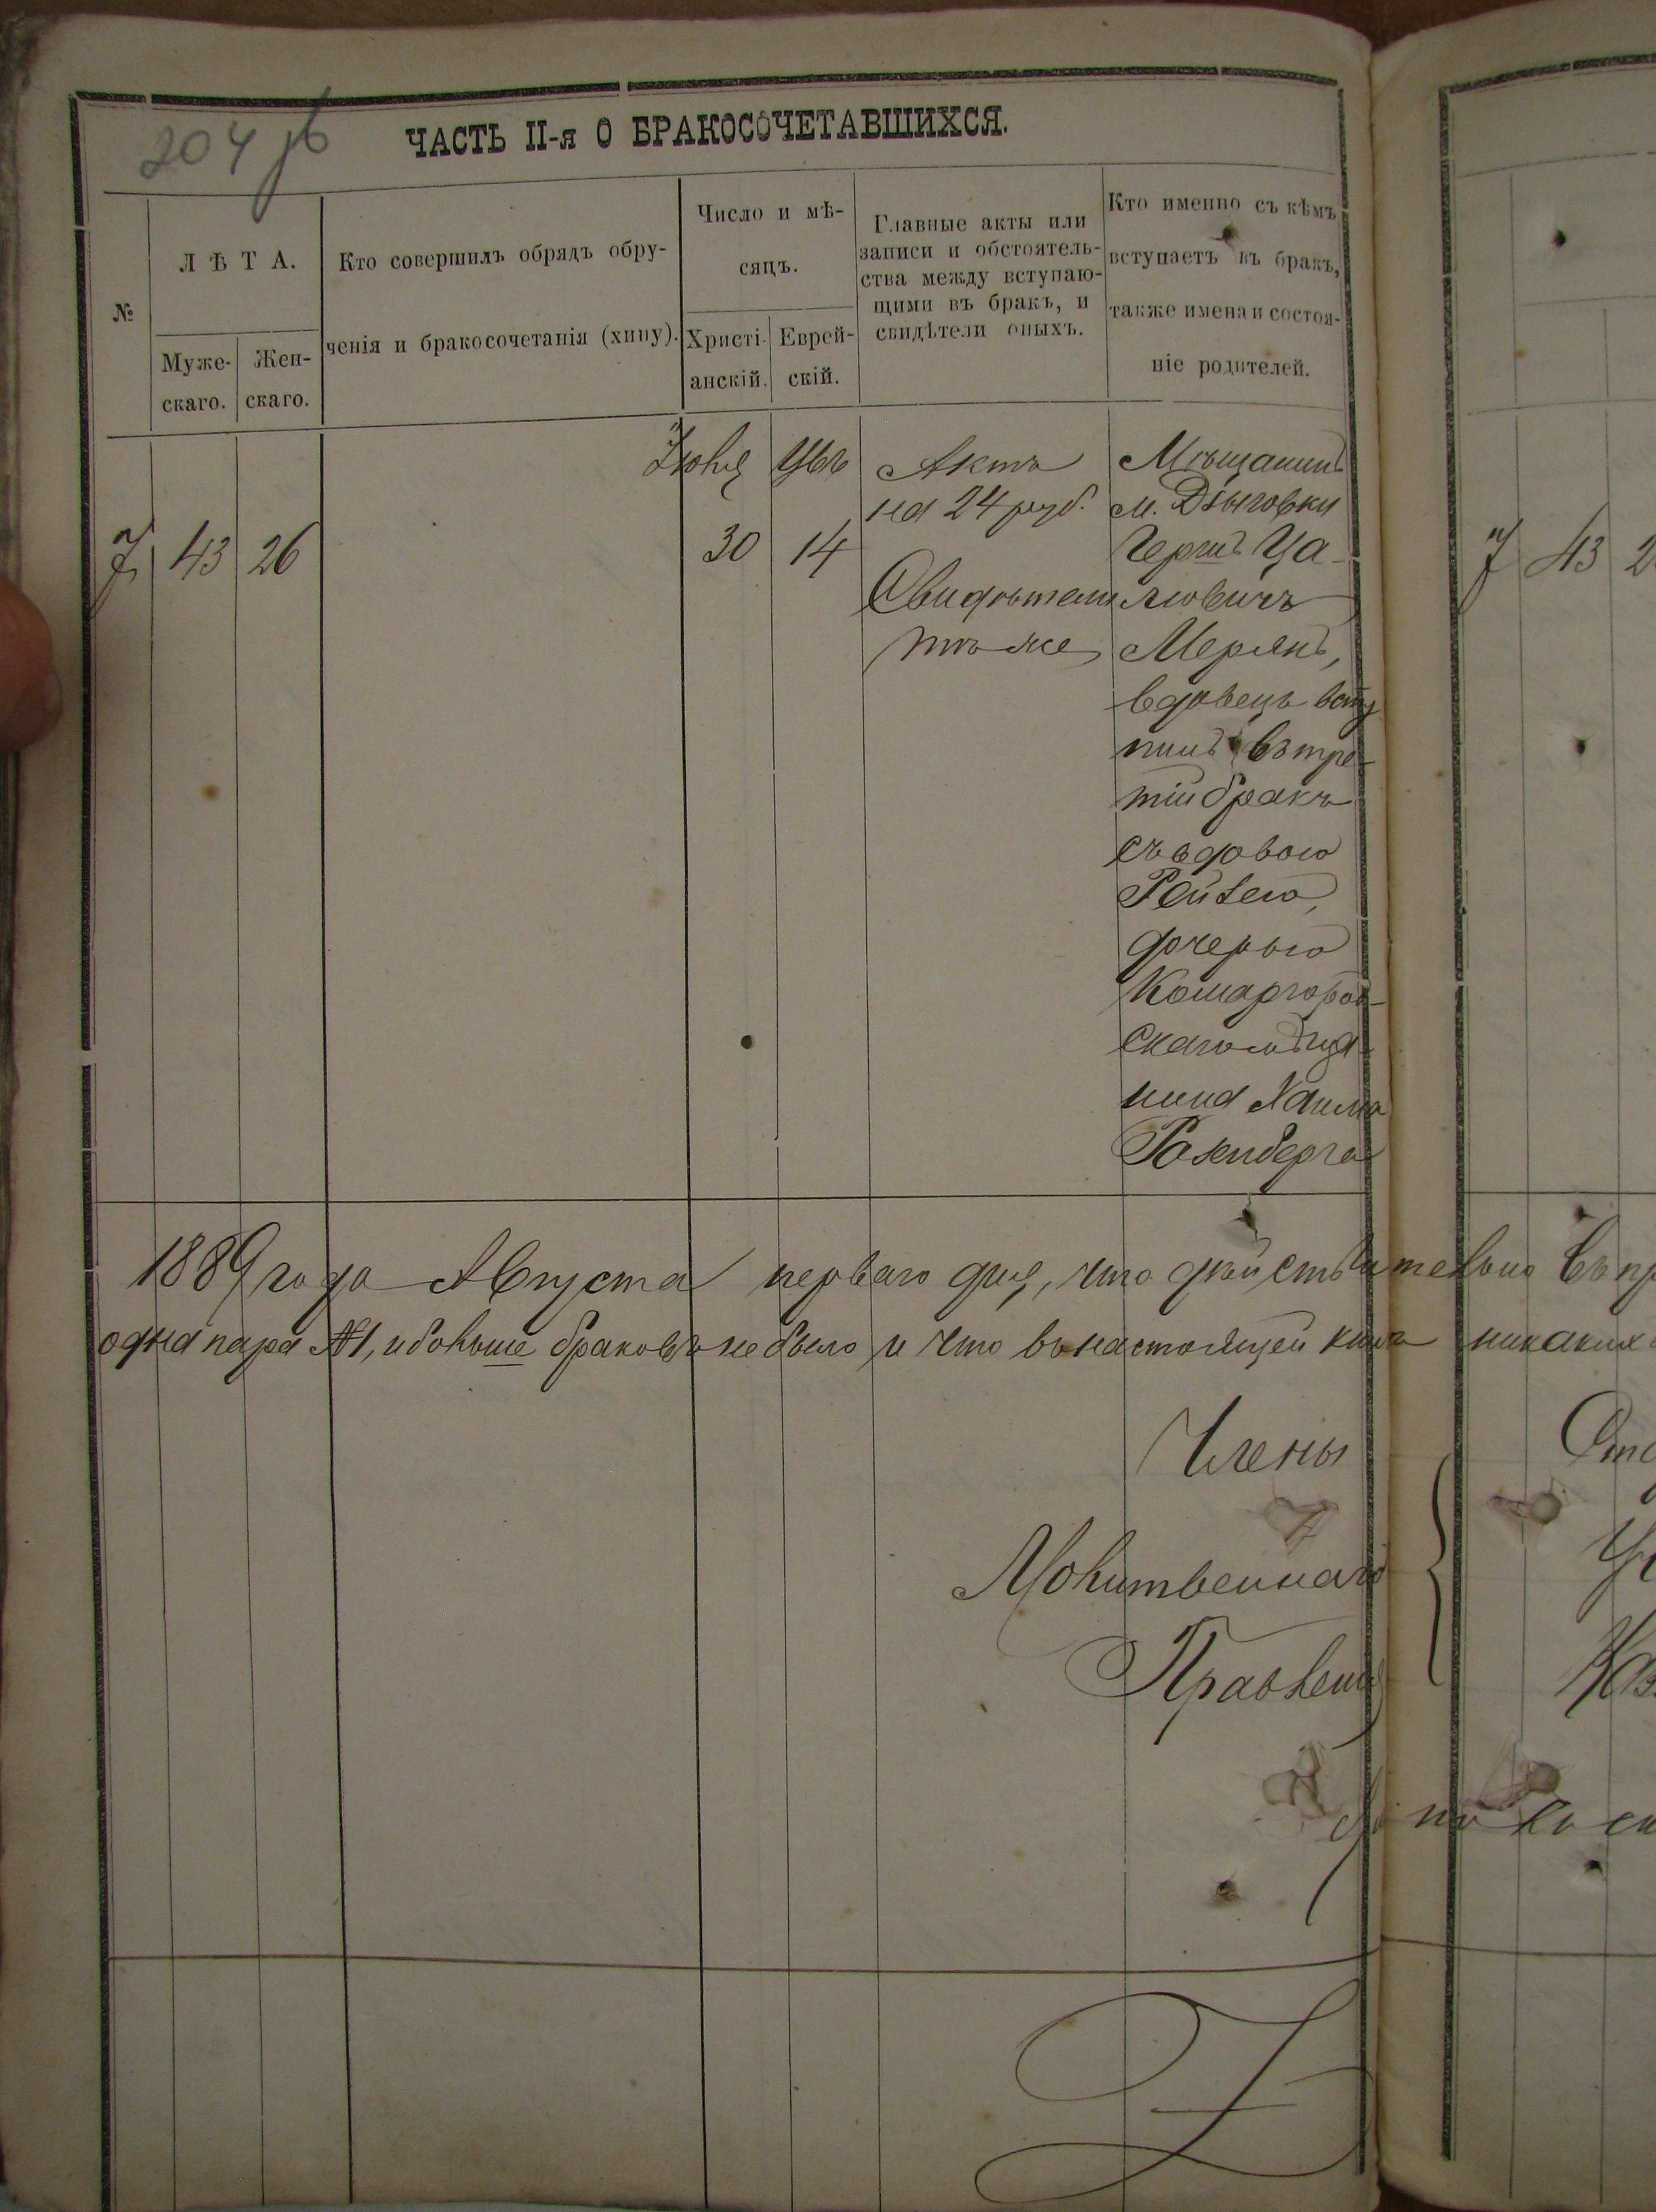 204 об
ЧАСТЬ II-я О БРАКОСОЧЕТАВШИХСЯ.
№
ЛѢТА.
Муже-
скаго.
Жен-
скаго.
Кто совершилъ обрядъ обру-
ченія и бракосочетанія (хипу).
Число и мѣ-
сяцъ.
Христі-
анскій.
Еврей-
скій.
Главные акты или
записи и обстоятель-
ства между вступаю-
щими въ бракъ, и
свидѣтели оныхъ.
Кто именно съ кѣмъ
вступаетъ въ бракъ,
также имена и состоя-
ніе родителей.
1 43 26
30 14
Актъ
на 24 руб.
Свидѣтели
тѣ же
Мѣщанинъ
м. Дзыговки
Гершъ Ца-
лювичъ
Мерянъ,
вдовецъ всту
пилъ въ тре-
тій бракъ
съ вдовою
Рейзею,
дочерью
Комаргород-
скаго мѣща-
нина Хаима
Розенберга
1 43 2
1889 года Августа перваго дня, что дѣйствительно въ пр
одна пара №1, и больше браковъ не было и что въ настоящей книгѣ никаких
Члены
Молитвеннаго
Правленія